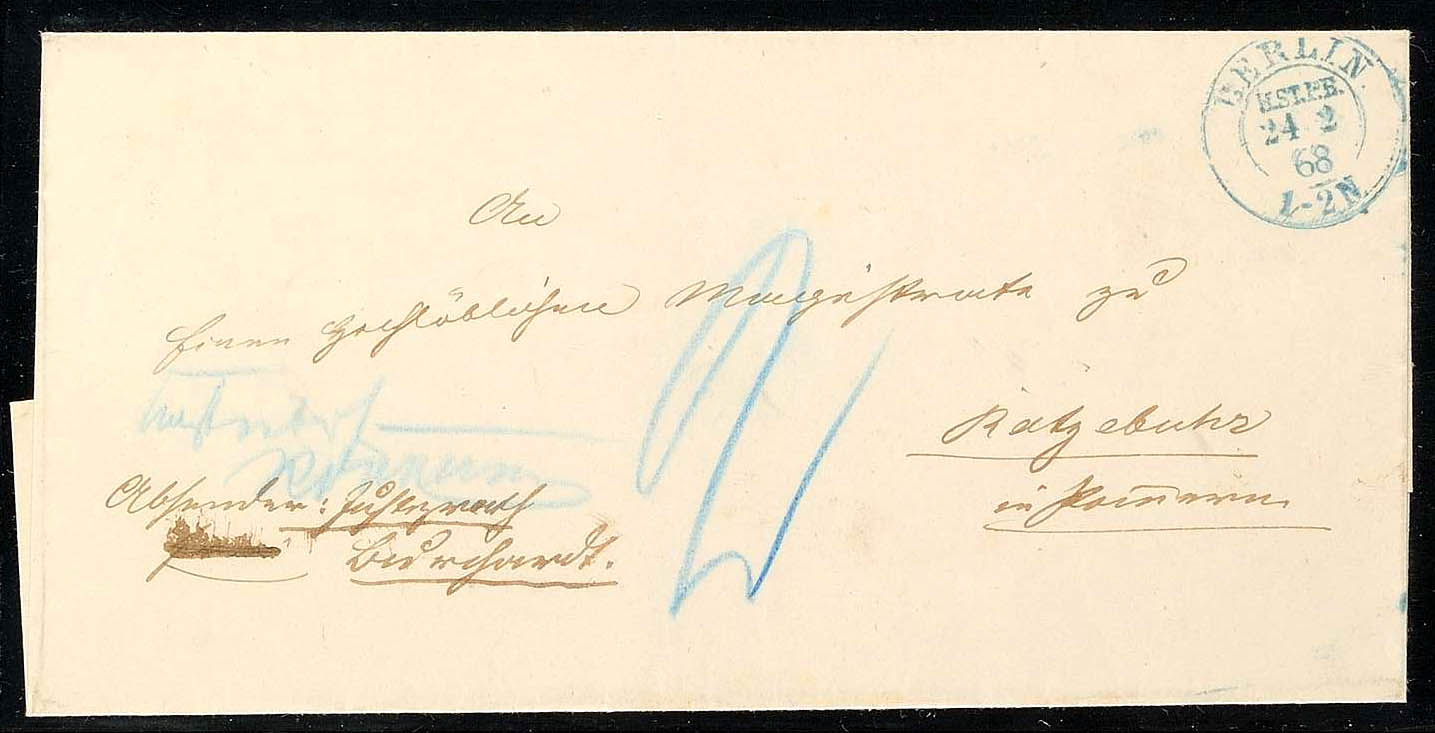 BERLIN
H.ST.P.E.
24 2
68
1-2N
An
Einen Hochlöblichen Magistrate zu
Ratzebuhr
in Pom̅ern
Absender: Justizrath
Burchardt.